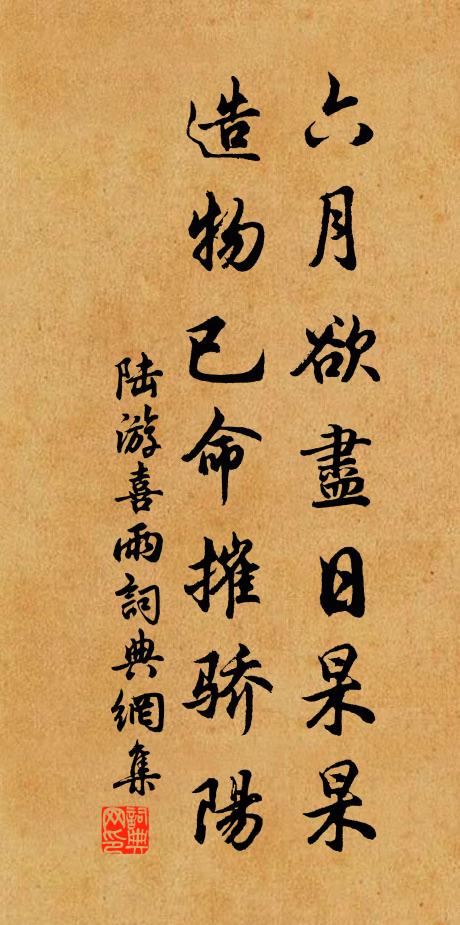 六月欲盡日杲杲
造物已命摧骄陽
陆游喜雨詞典網集
詞典网印